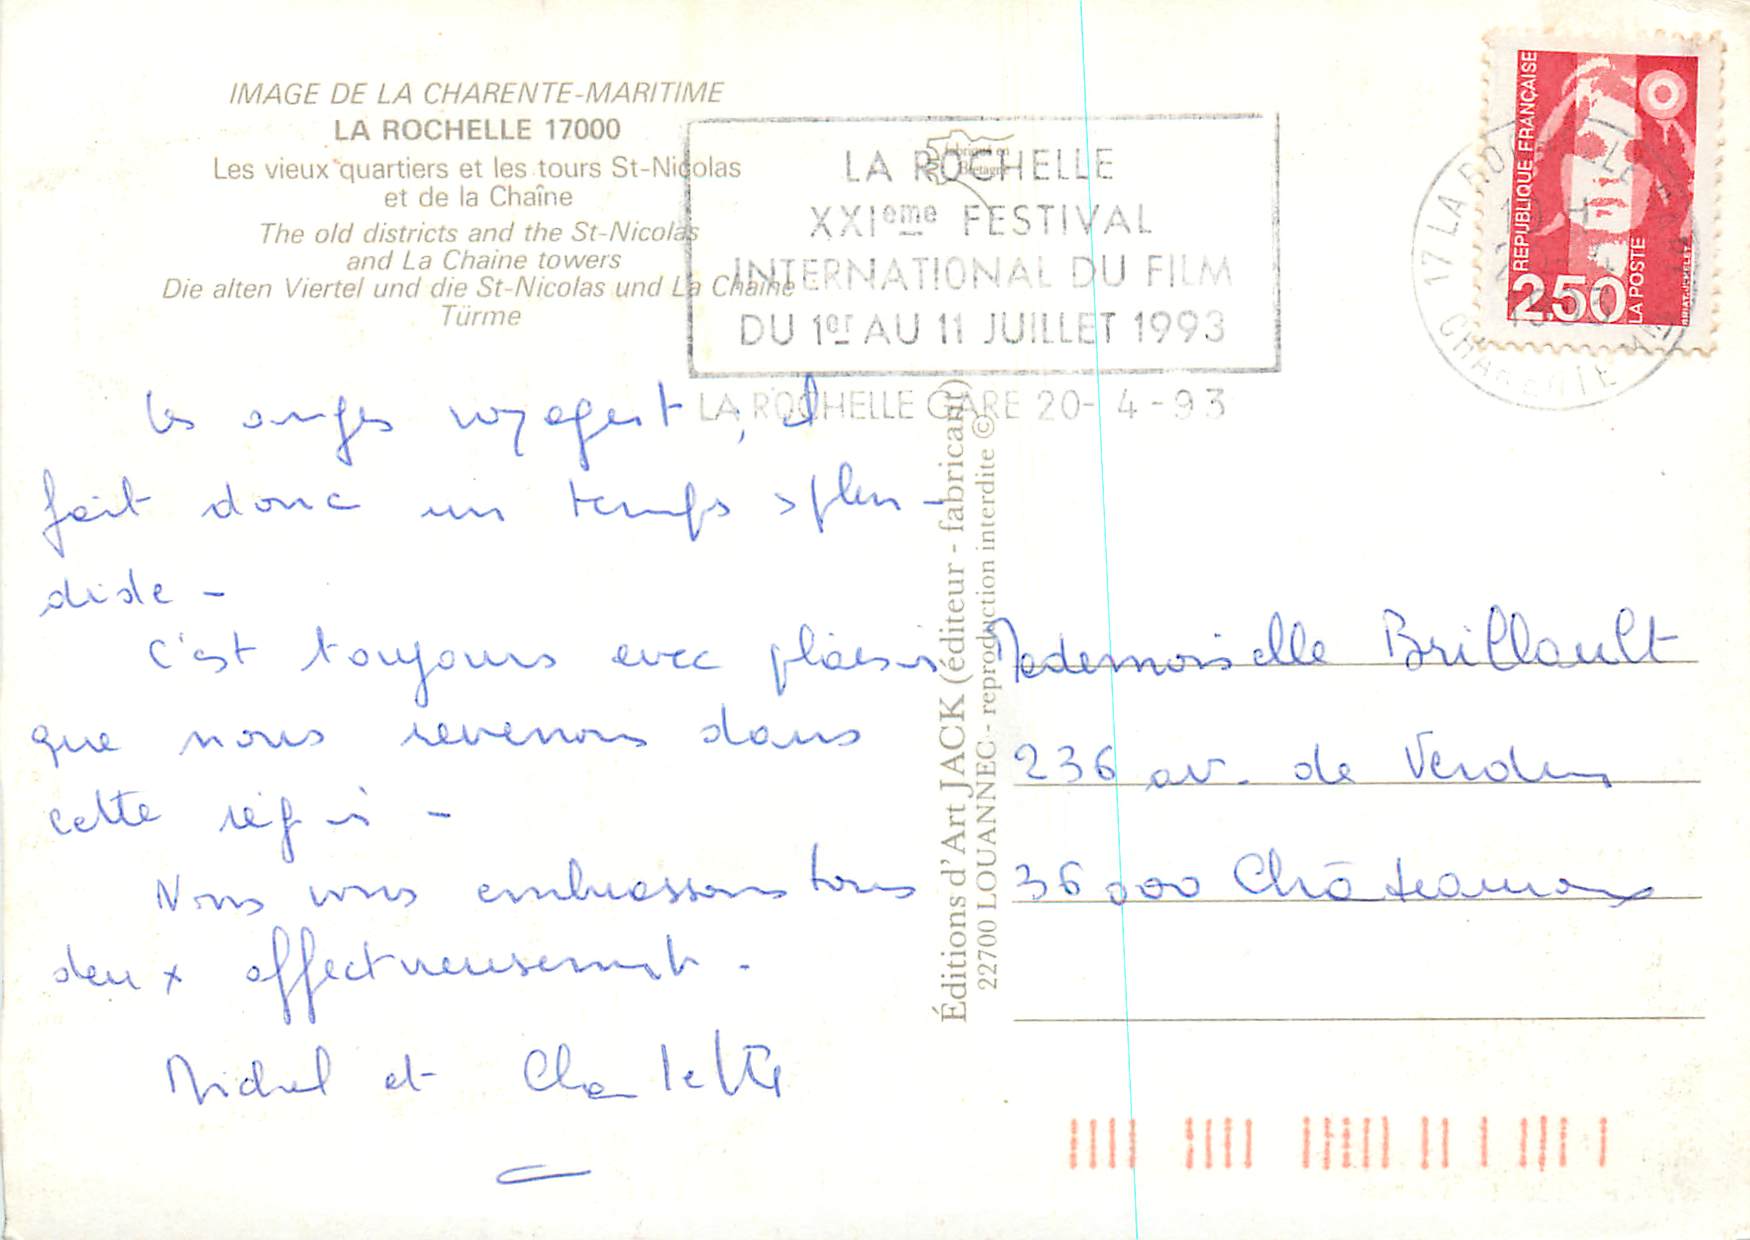 IMAGE DE LA CHARENTE-MARITIME
LA ROCHELLE 17000
Les vieux quartiers et les tours St-Nicolas
et de la Chaîne
The old districts and the St-Nicolas
and La Chaine towers
Die alten Viertel und die St-Nicolas und La Chaine
Türme
LA ROCHELLE
XXIeme FESTIVAL
INTERNATIONAL DU FILM
DU 1er AU 11 JUILLET 1993
LA ROCHELLE GARE 20-4-93
fabriqué en
Bretagne
REPUBLIQUE FRANÇAISE
2,50
LA POSTE
17 LA ROCHELLE GARE
CHARENTE MME
1993
Les anges voyagent, il
fait donc un temps splen-
dide -
C'est toujours avec plaisir
que nous revenons dans
cette région -
Nous vous embrassons tous
deux affectueusement.
Michel et Charlette
Éditions d'Art JACK (éditeur - fabricant)
22700 LOUANNEC - reproduction interdite ©
Mademoiselle Brillault
236 av. de Verdun
36000 Châteauroux